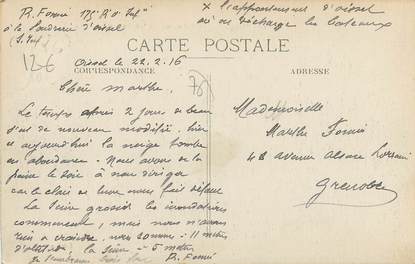 R. Fomié 175e R. d'Inf
à la Poudrerie d'oissel
(S. Inf)
x l'appontement d'oissel
où on décharge les bateaux
CARTE POSTALE
12€
Oissel le 22.2.16
CORRESPONDANCE
ADRESSE
Chère Marthe,
Le temps après 2 jours de beau
s'est de nouveau modifié, hier
et aujourd'hui la neige tombe
en abondance. Nous avons de la
peine le soir à nous diriger
car le clair de lune nous fait défaut
La Seine grossit les inondations
commencent, mais nous n'avons
rien à craindre, nous sommes à 11 mètres
d'altitude, la Seine à 5 mètres
Je t'embrasse bien fort
R. Fomié
Mademoiselle
Marthe Fomié
48 avenue Alsace Lorraine
Grenoble